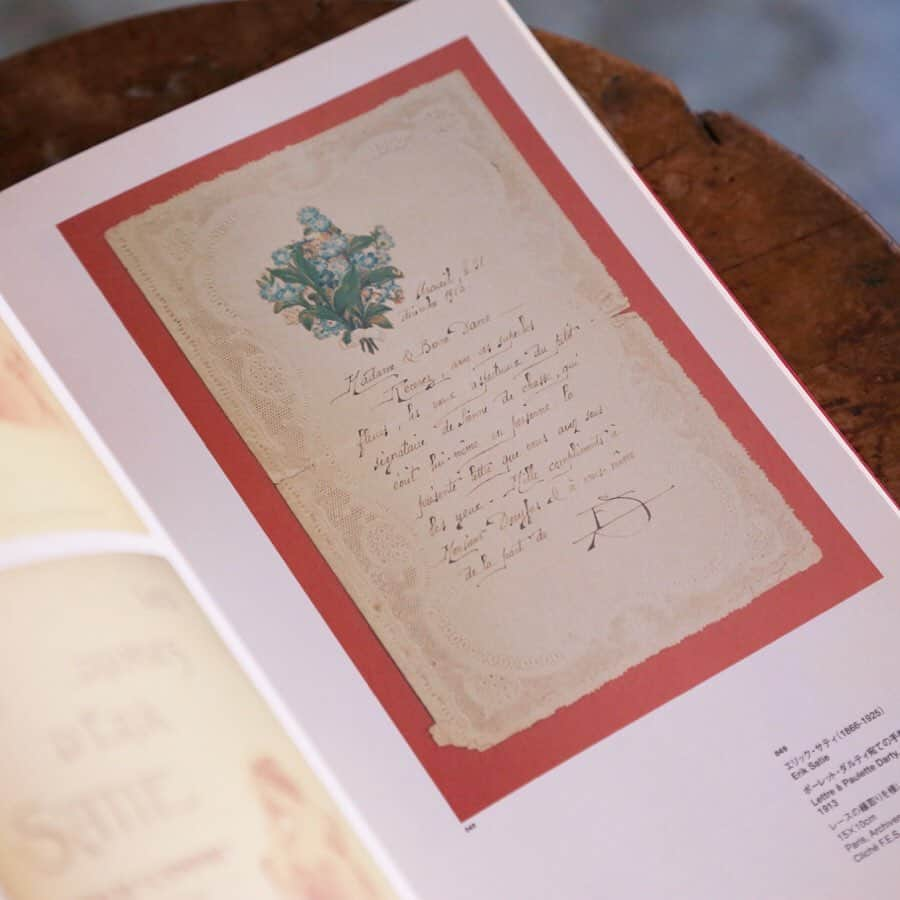 Arcueil, le 31
décembre 1913
Madame & Bonne Dame
Recevez, avec ces superbes
fleurs, les vœux affectueux du
signataire de
écrit lui-même en personne la
présente lettre que vous avez sous
les yeux. Mille compliments à
Monsieur Dreyfus & à vous même
de la part de
ES
849
エリック・サティ(1866-1925)
Erik Satie
ポーレット・ダルティ宛ての手
Lettre à Paulette Darty,
1913
レースの縁取りを
15×10cm
Paris, Archives
Cliché F.E.S.
Satie